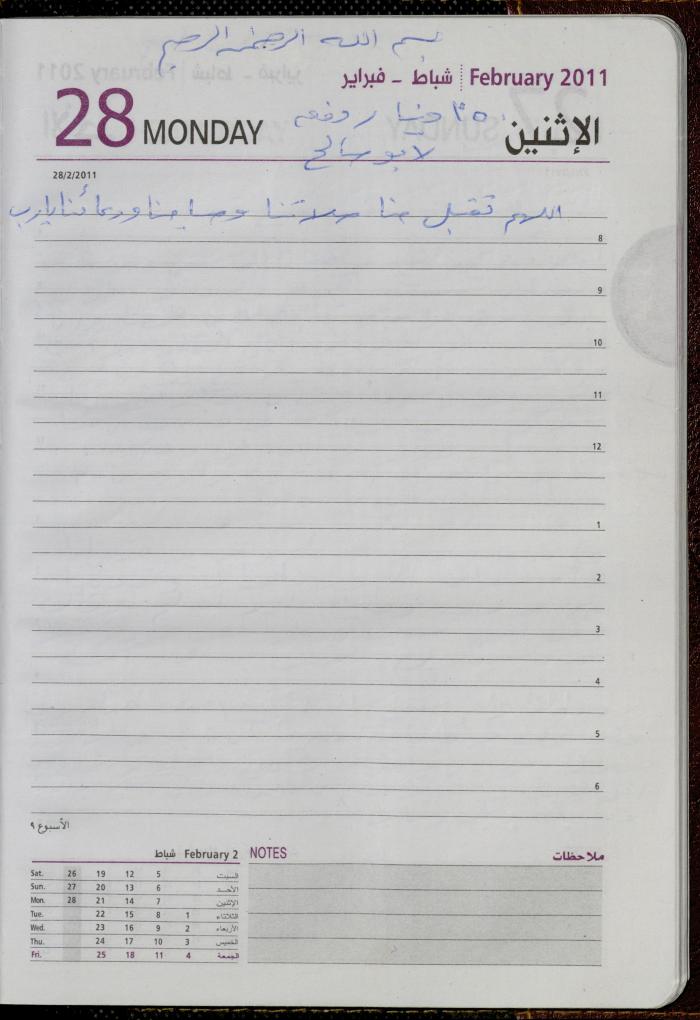 بسم الله الرحمن الرحيم
February 2011 شباط - فبراير
28 MONDAY الإثنين
لابو صالح
28/2/2011
اللهم تقبل منا صلاتنا وصيامنا ودعائنا يارب
8
9
10
11
12
1
2
3
4
5
6
الأسبوع ٩
February 2 شباط
Sat. 26 19 12 5 السبت
Sun. 27 20 13 6 الأحد
Mon. 28 21 14 7 الإثنين
Tue. 22 15 8 1 الثلاثاء
Wed. 23 16 9 2 الأربعاء
Thu. 24 17 10 3 الخميس
Fri. 25 18 11 4 الجمعة
NOTES ملاحظات